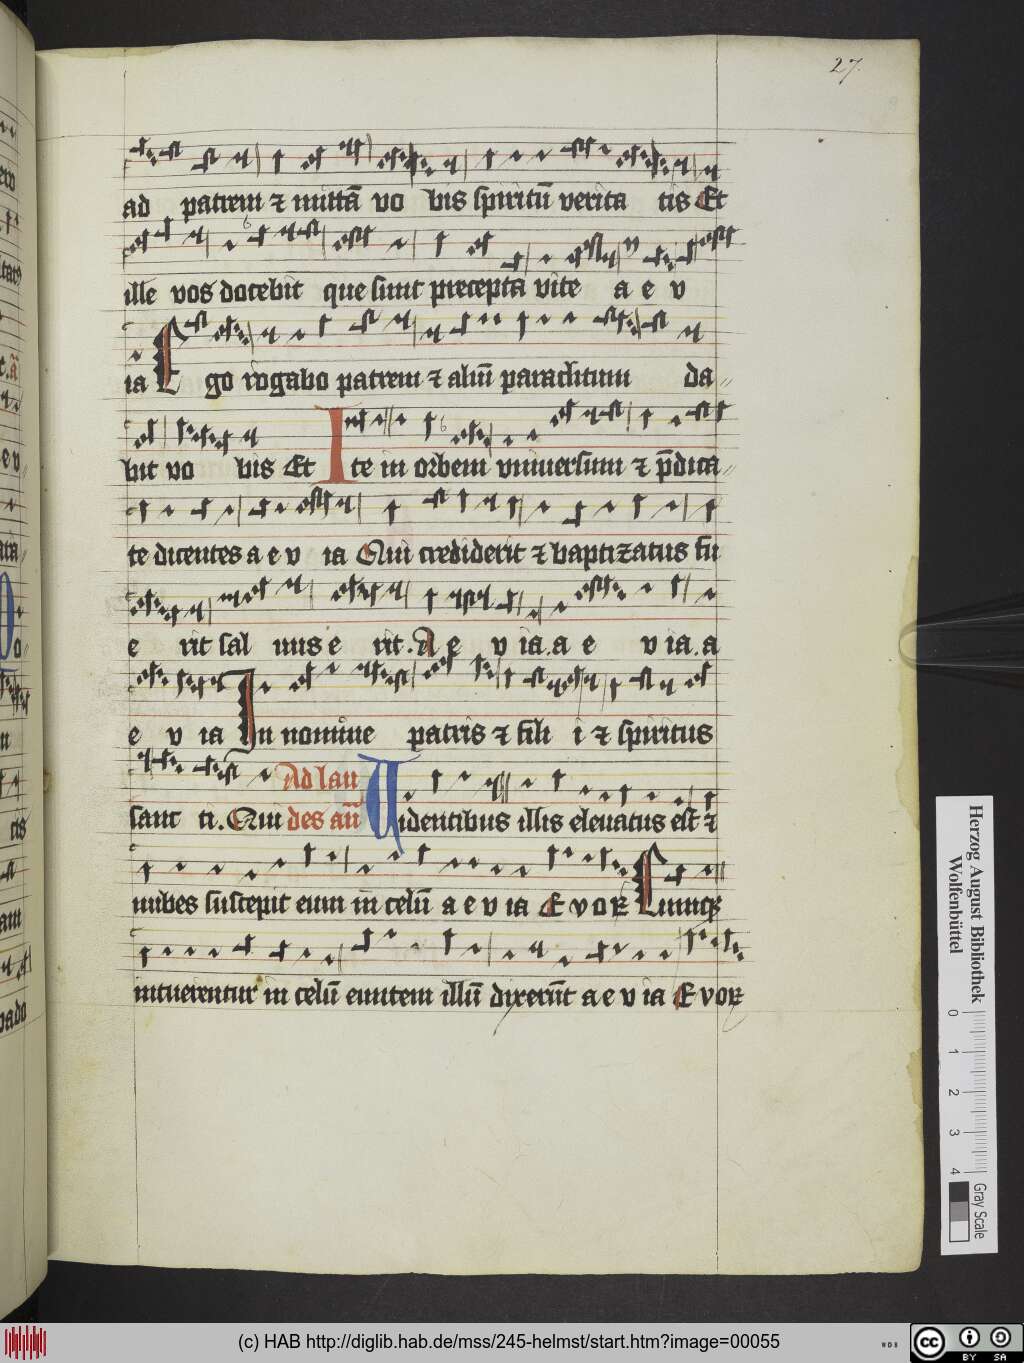 27.
ad patrem ⁊ mittā vo bis spiritū verita tis Et
ille vos docebit que sunt precepta vite a e v
ia Ego rogabo patrem ⁊ aliū paraclitum da
bit vo bis Et Ite in orbem vniuersum ⁊ p̄dica
te dicentes a e v ia Qui crediderit ⁊ baptizatus fu
e rit sal uus e rit. A e v ia. a e v ia. a
e v ia In nomine patris ⁊ fili i ⁊ spiritus
sanc ti. Qui Ad lau des añ Uidentibus illis eleuatus est ⁊
nubes suscepit eum in celū a e v ia E v o R Cumqꝫ
intuerentur in celū euntem illū dixerūt a e v ia E v o R
Herzog August Bibliothek
Wolfenbüttel
0 1 2 3 4
Gray Scale
(c) HAB http://diglib.hab.de/mss/245-helmst/start.htm?image=00055
WDB
cc BY SA